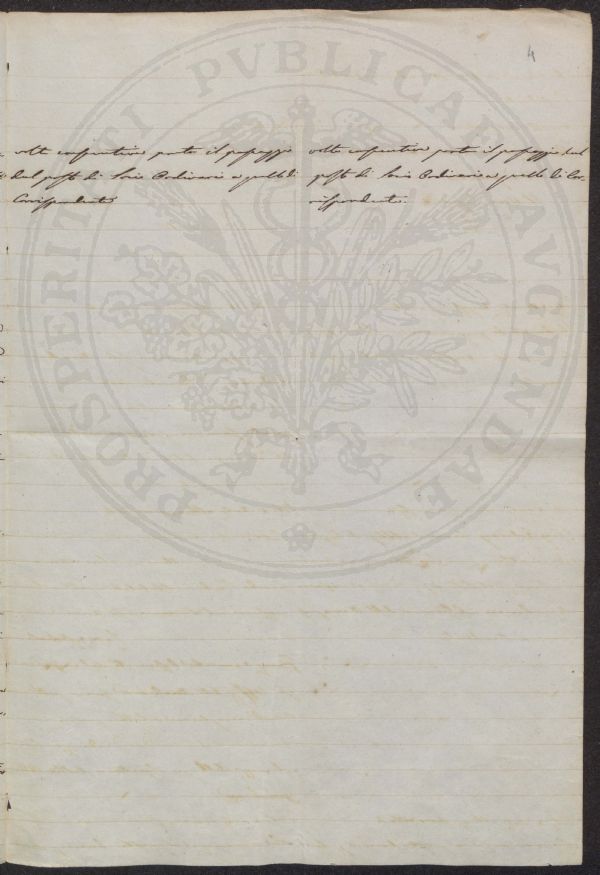 4
volte consecutive porta il passaggio
dal posto di Socio Ordinario a quello di
Corrispondente
volte consecutive porta il passaggio dal
posto di Socio Ordinario a quello di Cor-
rispondente.
PROSPERITATI PVBLICAE AVGENDAE